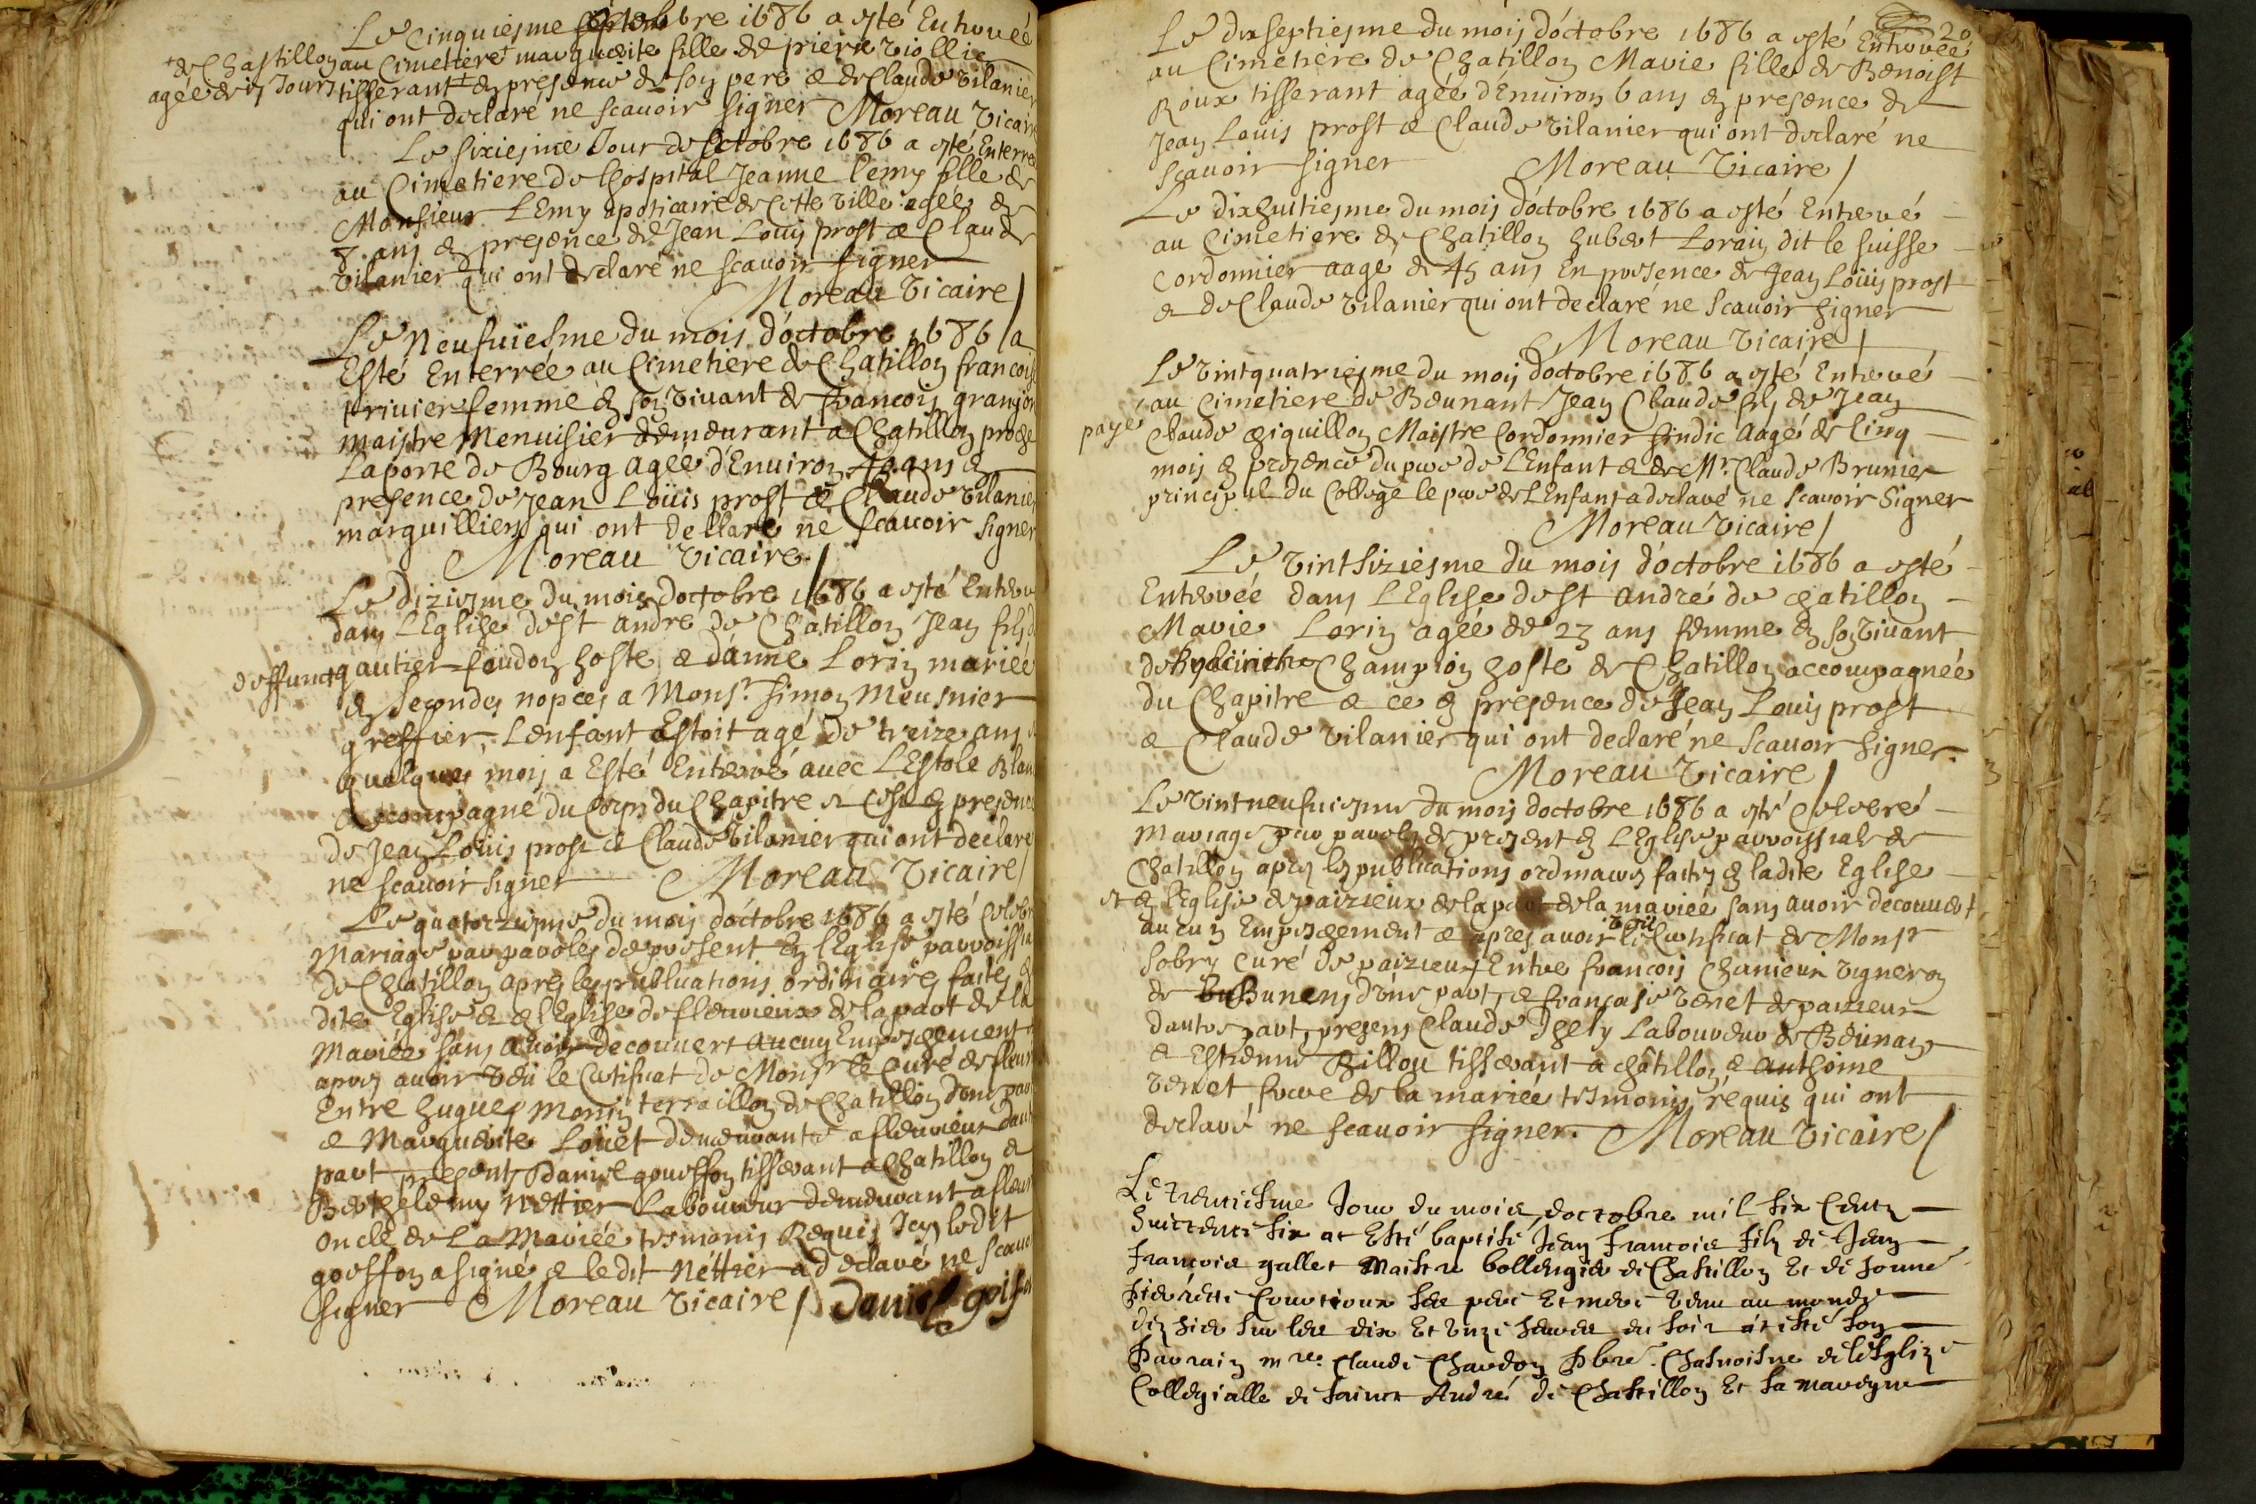 Le Cinquiesme octobre 1686 a esté Enterrée
+ de Chastillon au Cimetiere + marguerite fille de pierre
agée de 15 Jours tisserant + en presence de son pere & de Claude vilanier
qui ont declaré ne scauoir signer Moreau vicaire
Le sixiesme Jour de octobre 1686 a esté Enterré
au Cimetiere de lhospital Jeanne lemy fille de
Monsieur LEmy apoticaire de Cette ville agée de
3 ans en presence de Jean Louis prost & Claude
vilanier qui ont declaré ne scauoir signer
Moreau vicaire
Le Neufuiesme du mois d'octobre 1686 / a
Esté Enterrée au Cimetiere de Chatillon francoise
femme en son viuant de francois granjon
maistre Menuisier demeurant a Chatillon proche
La porte de Bourg agée d'Enuiron ans en
presence de Jean Loüis prost & Claude vilanier
marguilliers qui ont declaré ne scauoir signer
Moreau vicaire
Le diziesme du mois doctobre 1686 a esté Enterré
dans LEglise de st André de Chatillon Jean fils de
deffunct gautier hoste & d'anne Lorin mariée
en secondes nopces a Monsr Simon Meusnier
greffier, Lenfant Estoit agé de treize ans &
quelques mois a Esté Enterré auec LEstole Blan
accompagné du Corps du Chapitre & Ce en presence
de Jean Louis prost & Claude vilanier qui ont declaré
ne scauoir signer Moreau vicaire
Le quatorziesme du mois d'octobre 1686 a esté Celebré
Mariage par paroles de present En lEglise parroissia
de Chatillon apres les publications ordinaires faites en
dite Eglise & en lEglise de fleurieux de la part de la
Mariée sans auoir decouuert aucun Empeschement &
apres auoir veu le Certificat de Monsr le Curé de fleuri
Entre hugues Monin terraillon de Chatillon d'une part
& Marguerite Loüet demeurante a fleurieux dautre
part presents Daniel gouffon tisserant a Chatillon &
Berthelemy Nettier Laboureur demeurant a fleuri
oncle de La Mariée tesmoins Requis Icy ledit
gouffon a signé & ledit Néttier a declaré ne Scauoir
signer Moreau vicaire / Daniel
20
Le dixseptiesme du mois d'octobre 1686 a esté Enterrée
au Cimetiere de Chatillon Marie fille de Benoist
Roux tisserant agée d'Enuiron 6 ans en presence de
Jean Loüis prost & Claude vilanier qui ont declaré ne
scauoir signer Moreau Vicaire /
Le dixhuitiesme du mois d'octobre 1686 a esté Enterré
au Cimetiere de Chatillon hubert Lorain dit le suisse
Cordonnier aagé de 45 ans En presence de Jean Loüis prost
& de Claude vilanier qui ont declaré ne scauoir signer
Moreau vicaire /
Le vintquatriesme du mois doctobre 1686 a esté Enterré
au Cimetiere de Beunant Jean Claude fils de Jean
payé Claude eiguillon Maistre Cordonnier sindic Aagé de Cinq
mois en presence du pere de LEnfant & de Mr Claude Brunier
principal du College le pere de LEnfant a declaré ne scauoir signer
Moreau vicaire /
Le vintsiziesme du mois d'octobre 1686 a esté
Enterrée dans LEglise de st André de chatillon
Marie Lorin agée de 23 ans femme en son viuant
de hyacinthe Champion hoste de Chatillon accompagnée
du Chapitre & ce en presence de Jean Louis prost
& Claude vilanier qui ont declaré ne scauoir signer.
Moreau vicaire /
Le vintneufuiesme du mois doctobre 1686 a esté Celebré
mariage par paroles de present en LEglise parroissiale de
Chatillon apres les publications ordinaires faites en ladite Eglise
& en lEglise de paizieux de la part de la mariée sans auoir decouuert
aucun Empeschement & apres auoir veu le Certificat de Monsr
Sobry Curé de paizieux Entre francois Chanieur vigneron
de Bunens d'une part, & francoise venet de paizieux
dautre part, presens Claude Laboureur de Beunan
& Estienne tisserant a châtillon & Anthoine
venet frere de la mariée tesmoins requis qui ont
declaré ne scauoir signer. Moreau Vicaire /
Le trentiesme Jour du mois doctobre mil six Cents
huictente six at Esté baptisé Jean francois filz de Jean
francois gallet Maistre bollengier de Chastillon Et de honne
pierrette ses pere Et mere venu au monde
dix et vnze heures du soir at esté son
parrain mre Claude Chardon pbre Chanoisne de lEsglize
Collegialle de sainct André de Chastillon Et sa mareyne